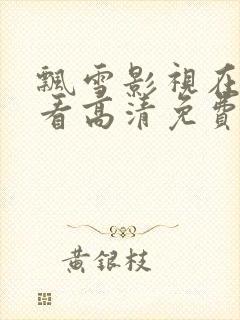 飄雪影視在
看高清免費
黃銀枝